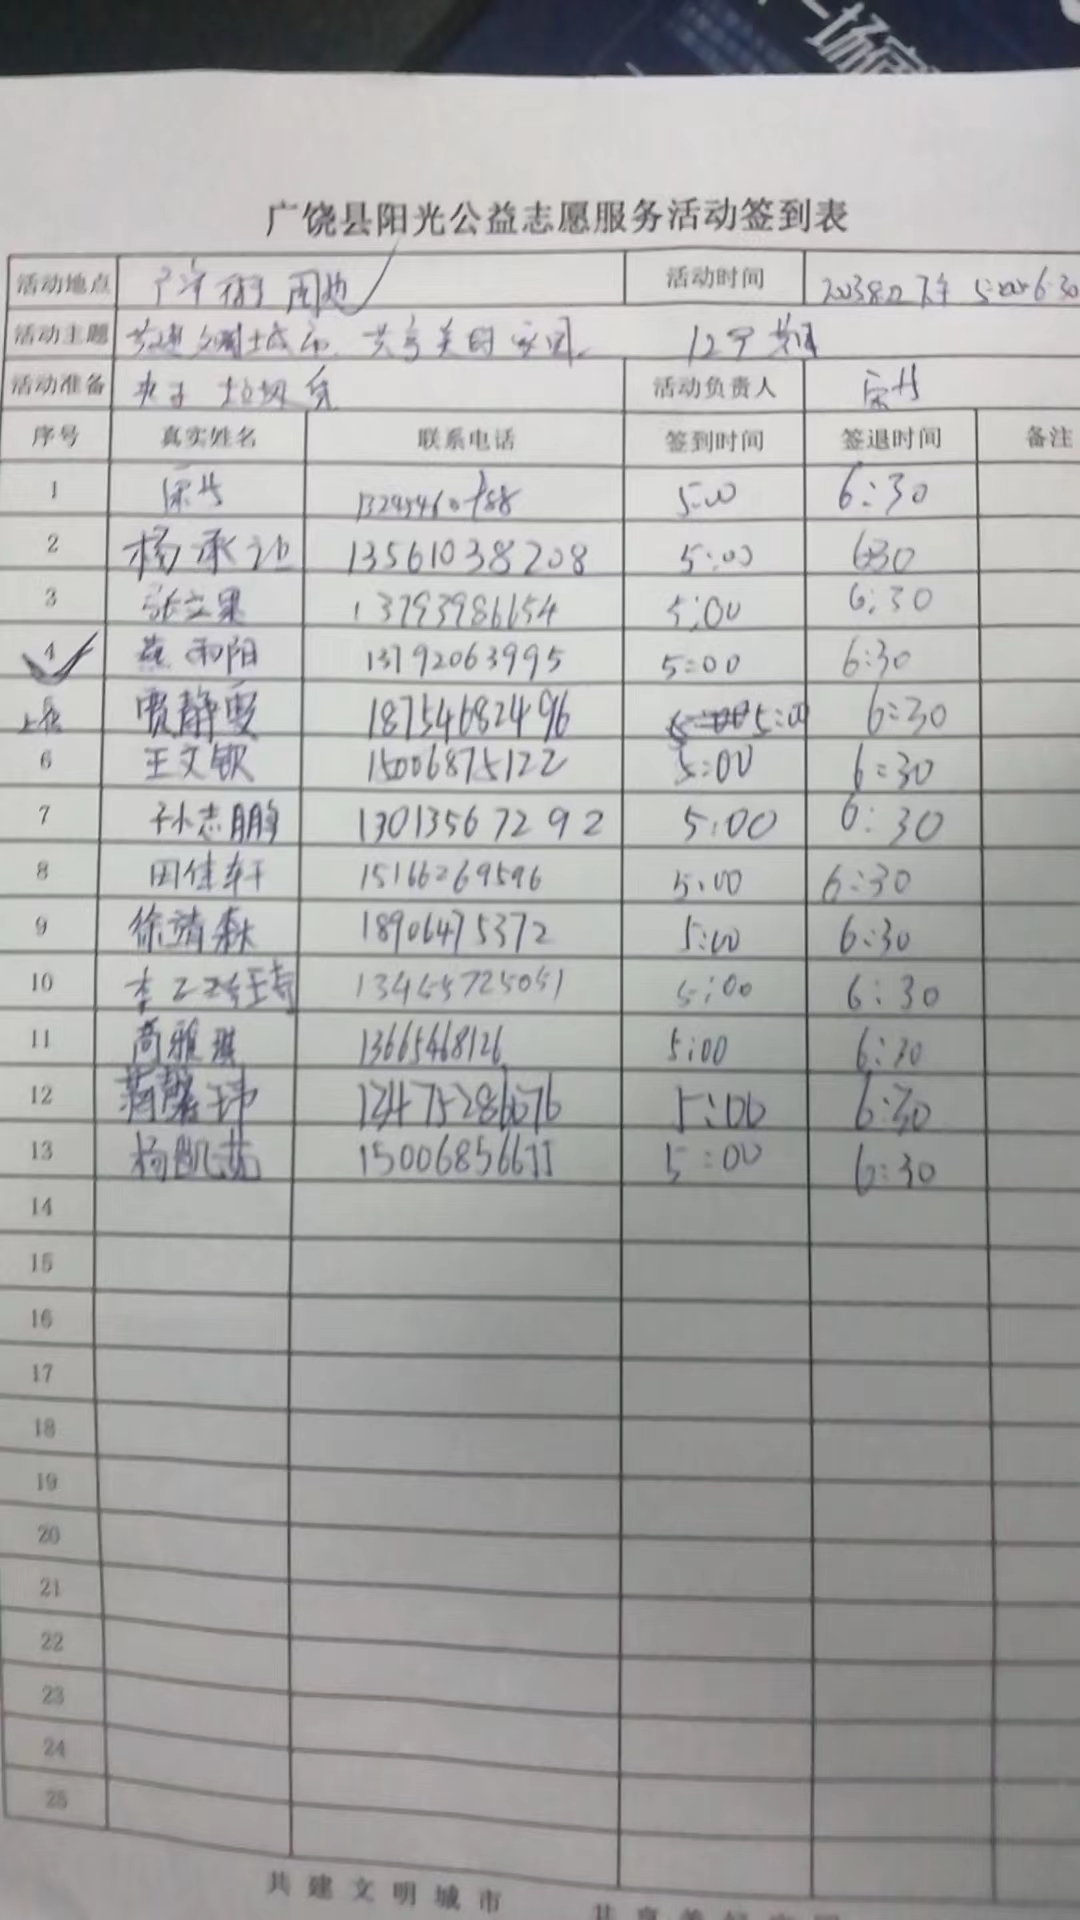 一场
广饶县阳光公益志愿服务活动签到表
活动地点 周边 活动时间 下午 5:00-6:30
活动主题 共建文明城市、共享美好家园
活动准备 夹子 垃圾袋 活动负责人
序号 真实姓名 联系电话 签到时间 签退时间 备注
1 5:00 6:30
2 杨承 13561038208 5:00 6:30
3 张立果 13793986654 5:00 6:30
4 燕雨阳 13792063995 5:00 6:30
贾静雯 18754682496 5:00 6:30
6 王文钦 15006875122 5:00 6:30
7 孙志鹏 13013567292 5:00 6:30
8 田佳轩 15166269596 5:00 6:30
9 徐靖森 18906475372 5:00 6:30
10 李 13455725051 5:00 6:30
11 尚雅琪 13665468126 5:00 6:30
12 蒋馨玮 13475286676 5:00 6:30
13 杨凯茹 15006856611 5:00 6:30
14
15
16
17
18
19
20
21
22
23
24
25
共建文明城市